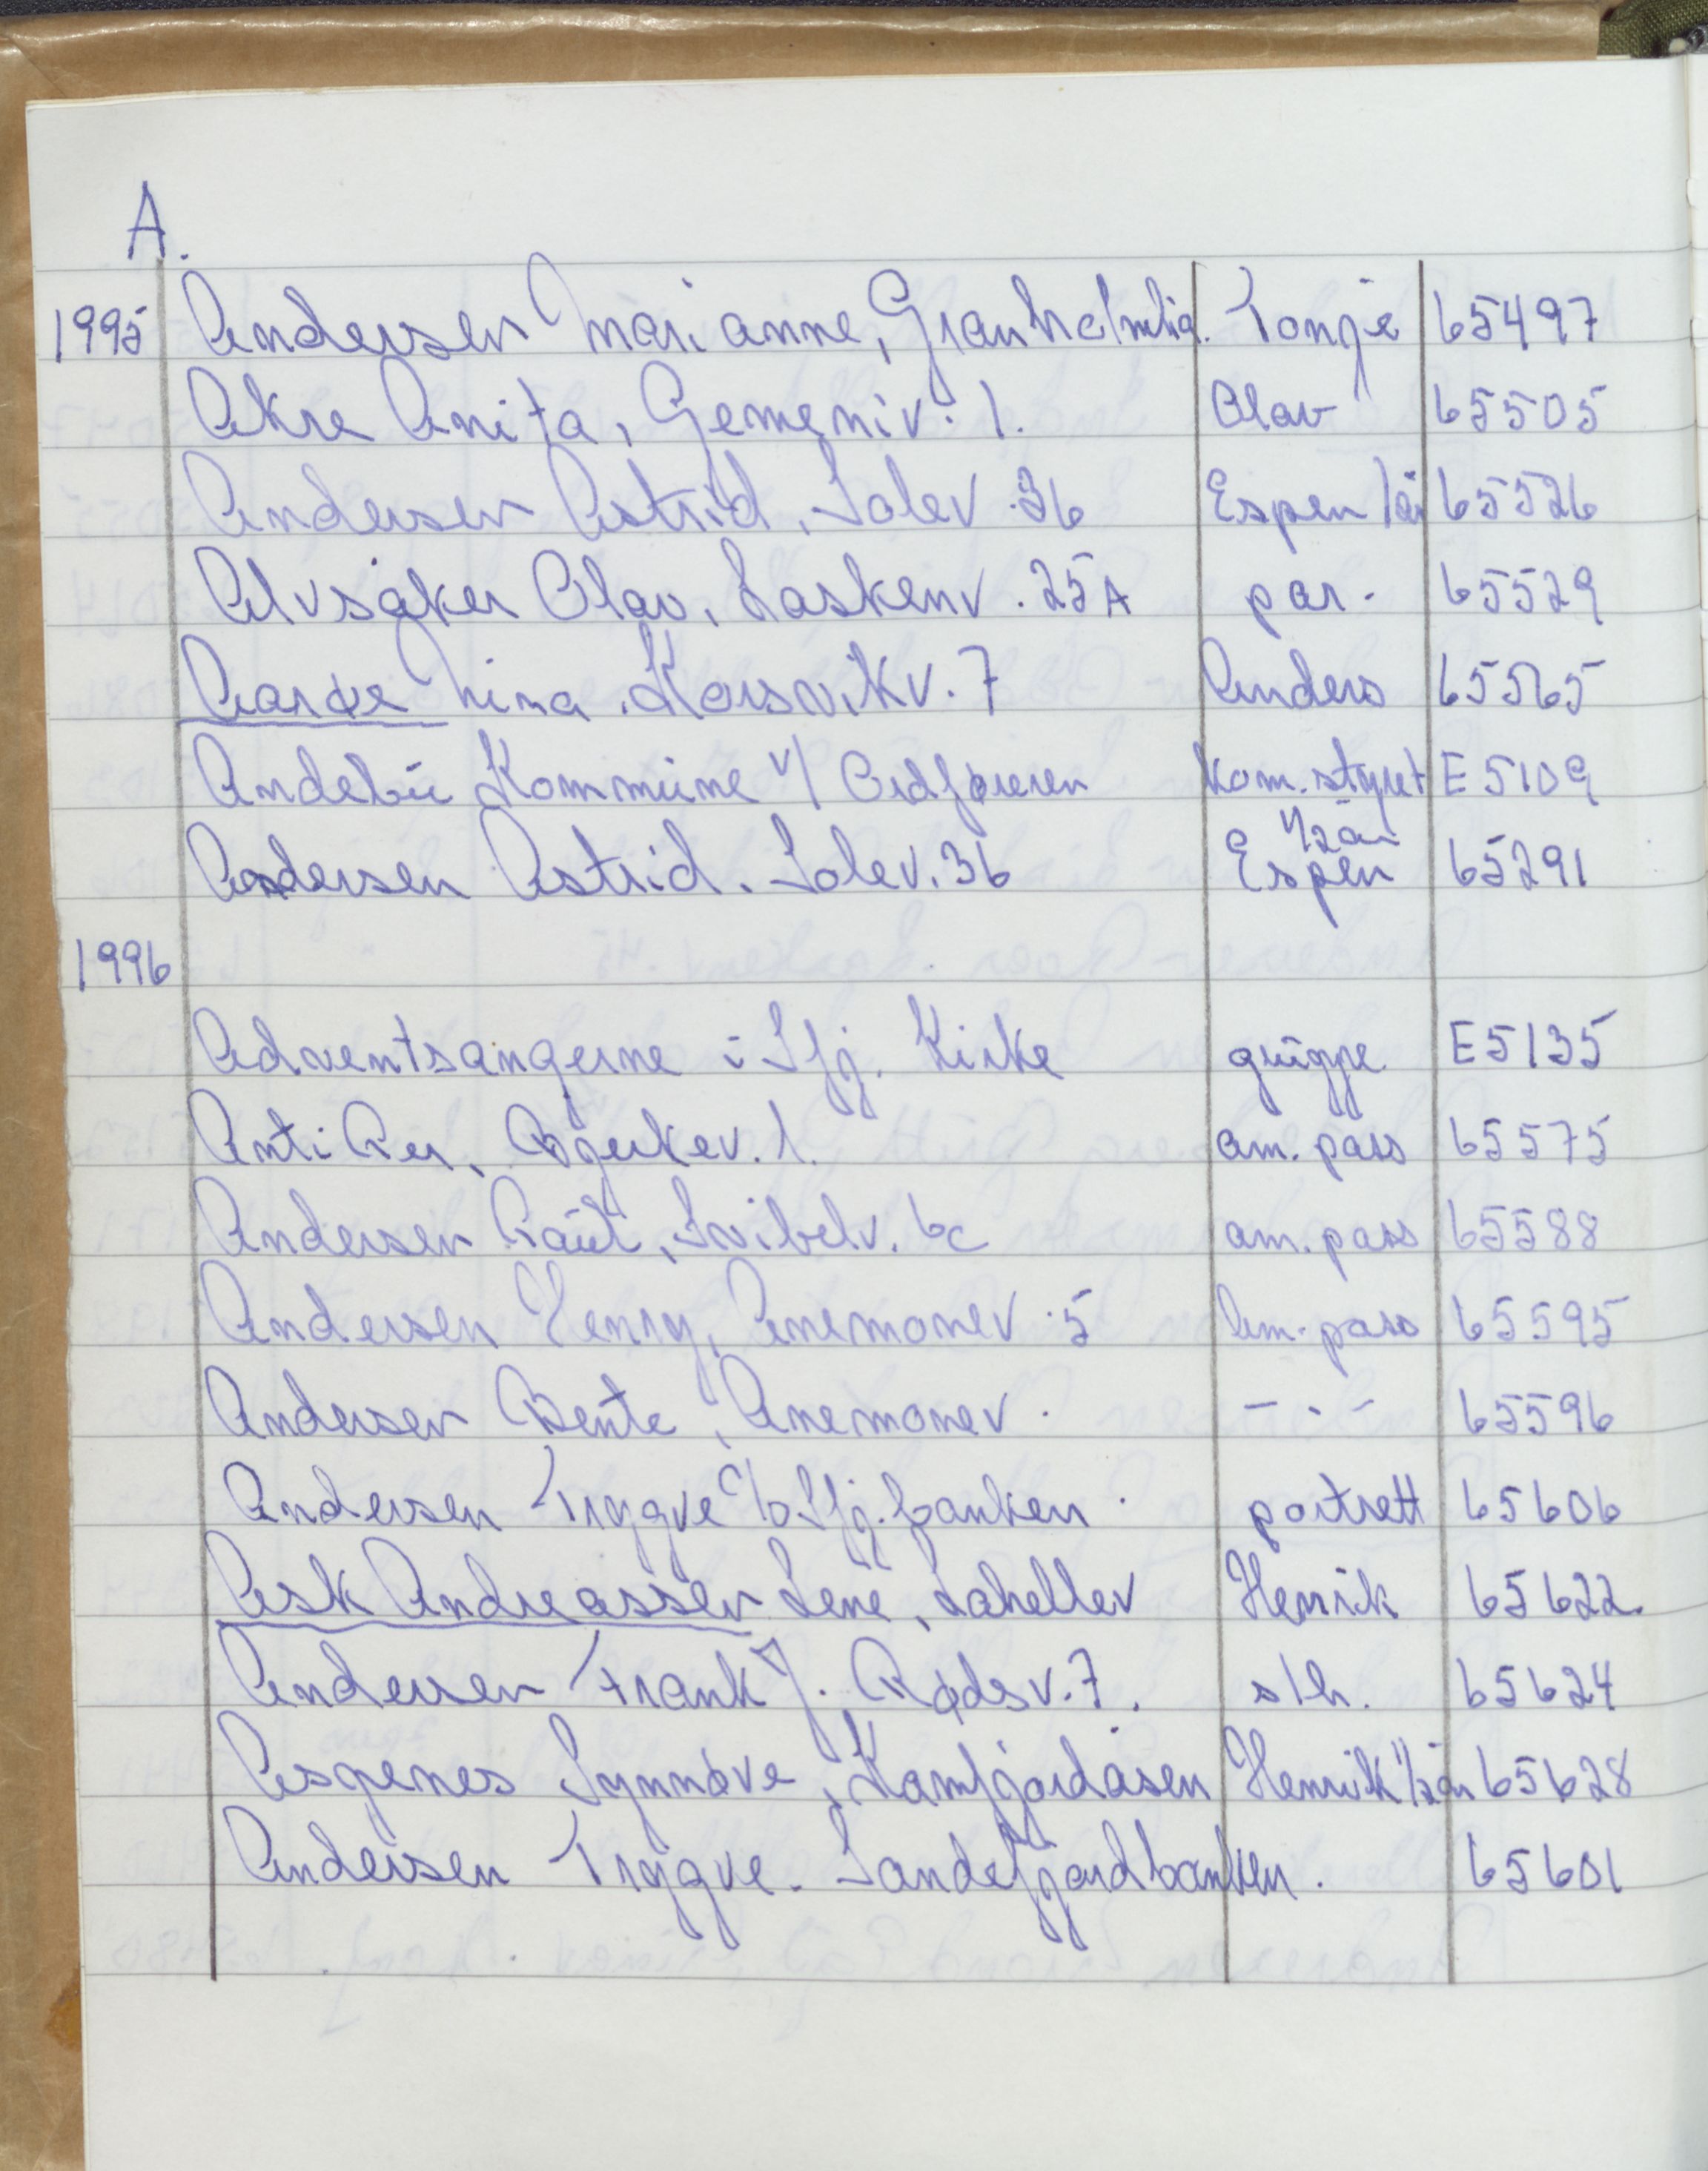 A.
1995 Andersen Marianne, Granholmlia. Tonje 65497
Akre Anita, Gemeniv. 1. Olav 65505
Andersen Astrid, Solev. 36 Espen 1 år 65526
Alvsåker Olav, Laskenv. 25A par. 65529
Aarøe Nina. Korsvikv. 7 Anders 65565
Andebu Kommune v/ Ordføreren kom. styret E5109
Andersen Astrid. Solev. 36 Espen 1/2 år 65291
1996
Adventsangerne i Sfj. Kirke gruppe E5135
Anti Per, Bjerkev. 1. am. pass 65575
Andersen Paul, Svibelv. 6c am. pass 65588
Andersen Henry, Anemonev. 5 Am. pass 65595
Andersen Bente, Anemonev. - . - 65596
Andersen Trygve c/o Sfj. banken. portrett 65606
Ask Andreassen Lene, Lahellev Henrik 65622.
Andersen Frank J. Rødsv. 7. s/h. 65624
Asgenes Synnøve, Kamfjordåsen Henrik 1/2 år 65628
Andersen Trygve. Sandefjordbanken. 65601